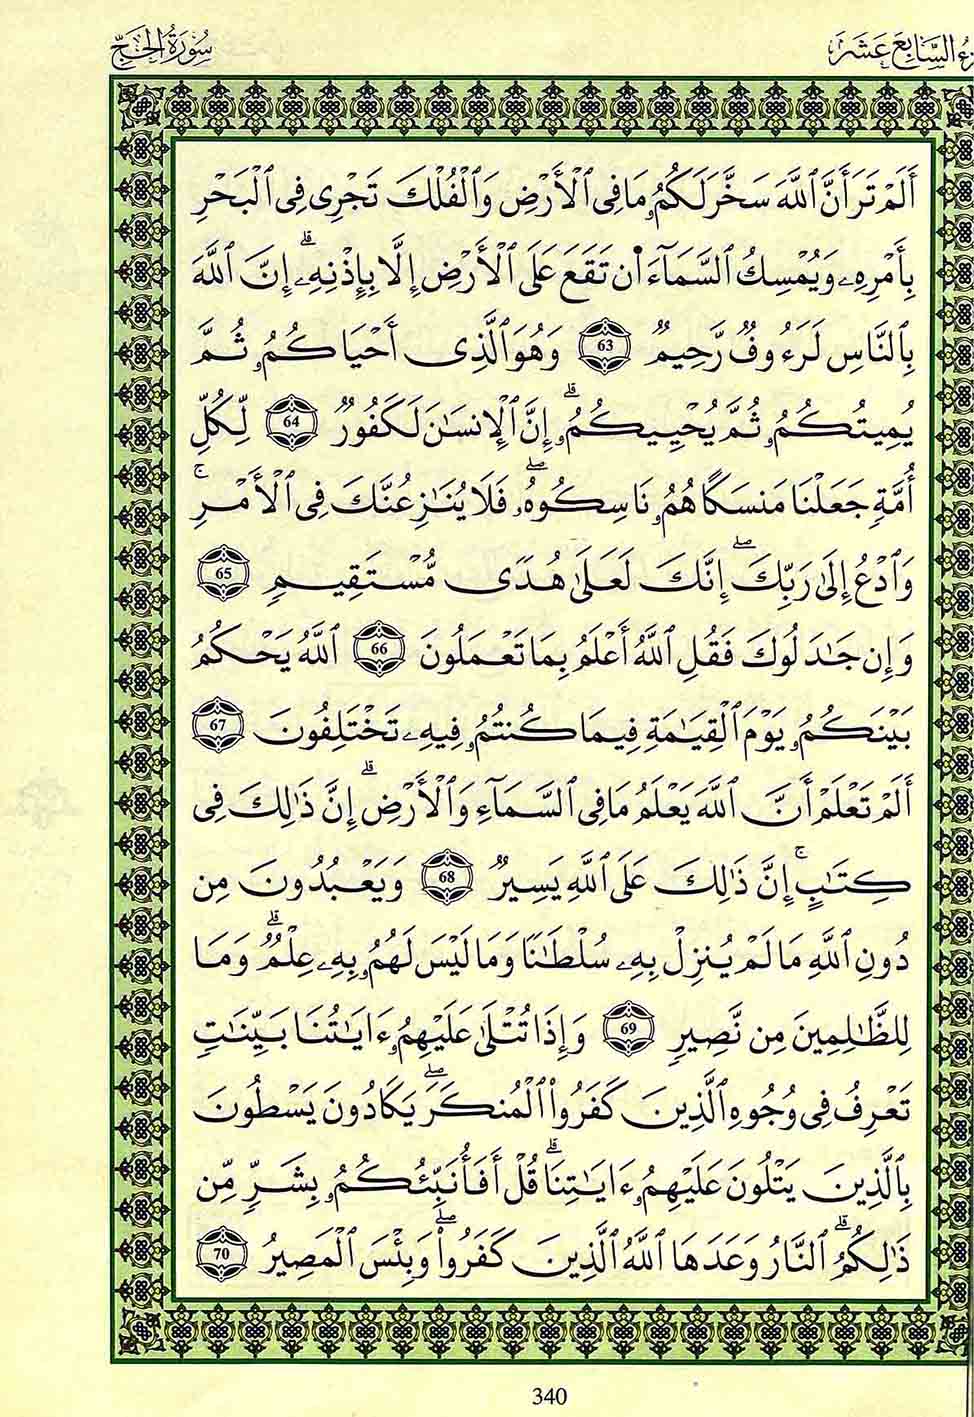 زءُ السَّابِعَ عَشَرَ
سُورَةُ الحَجِّ
أَلَمْ تَرَ أَنَّ ٱللَّهَ سَخَّرَ لَكُمُۥ مَا فِى ٱلْأَرْضِ وَٱلْفُلْكَ تَجْرِى فِى ٱلْبَحْرِ
بِأَمْرِهِۦ وَيُمْسِكُ ٱلسَّمَآءَ ا۬ن تَقَعَ عَلَى ٱلْأَرْضِ إِلَّا بِإِذْنِهِۦٓۗ إِنَّ ٱللَّهَ
بِٱلنَّاسِ لَرَءُوفٌ رَّحِيمٌ 63 وَهُوَ ٱلَّذِى أَحْيَاكُمُۥ ثُمَّ
يُمِيتُكُمُۥ ثُمَّ يُحْيِيكُمُۥۗ إِنَّ ٱلْإِنسَٰنَ لَكَفُورٌ 64 لِّكُلِّ
أُمَّةٍ جَعَلْنَا مَنسَكًا هُمُۥ نَاسِكُوهُۥۖ فَلَا يُنَٰزِعُنَّكَ فِى ٱلْأَمْرِۚ
وَٱدْعُ إِلَىٰ رَبِّكَۖ إِنَّكَ لَعَلَىٰ هُدًى مُّسْتَقِيمٍ 65
وَإِن جَٰدَلُوكَ فَقُلِ ٱللَّهُ أَعْلَمُ بِمَا تَعْمَلُونَ 66 ٱللَّهُ يَحْكُمُ
بَيْنَكُمُۥ يَوْمَ ٱلْقِيَٰمَةِ فِيمَا كُنتُمُۥ فِيهِۦ تَخْتَلِفُونَ 67
أَلَمْ تَعْلَمْ أَنَّ ٱللَّهَ يَعْلَمُ مَا فِى ٱلسَّمَآءِ وَٱلْأَرْضِۗ إِنَّ ذَٰلِكَ فِى
كِتَٰبٍۚ إِنَّ ذَٰلِكَ عَلَى ٱللَّهِ يَسِيرٌ 68 وَيَعْبُدُونَ مِن
دُونِ ٱللَّهِ مَا لَمْ يُنزِلْ بِهِۦ سُلْطَٰنًا وَمَا لَيْسَ لَهُمُۥ بِهِۦ عِلْمٌۗ وَمَا
لِلظَّٰلِمِينَ مِن نَّصِيرٍ 69 وَإِذَا تُتْلَىٰ عَلَيْهِمُۥ ءَايَٰتُنَا بَيِّنَٰتٍ
تَعْرِفُ فِى وُجُوهِ ٱلَّذِينَ كَفَرُوا۟ ٱلْمُنكَرَۖ يَكَادُونَ يَسْطُونَ
بِٱلَّذِينَ يَتْلُونَ عَلَيْهِمُۥ ءَايَٰتِنَاۗ قُلْ أَفَأُنَبِّئُكُمُۥ بِشَرٍّ مِّن
ذَٰلِكُمُۥۗ ٱلنَّارُ وَعَدَهَا ٱللَّهُ ٱلَّذِينَ كَفَرُوا۟ۖ وَبِئْسَ ٱلْمَصِيرُ 70
340